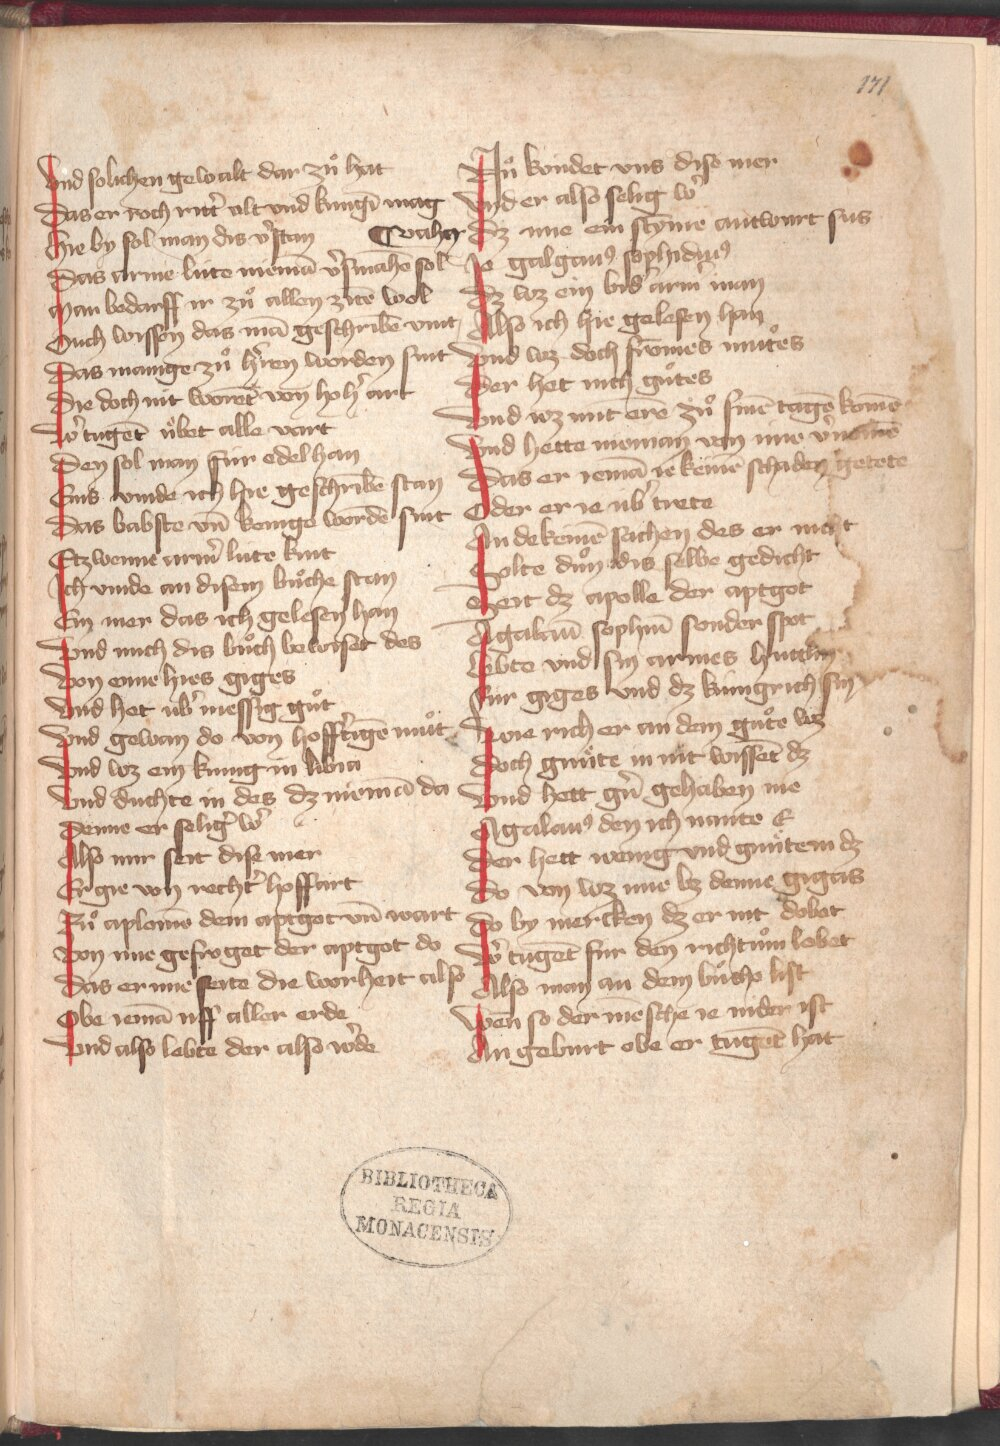 171
Vnd solichen gewalt dar zuͦ hat
Das er roch ritt' alt vnd kungī mag
Hie by sol man dis v'stan
Das arme lúte niemā v'smahē sol
Man bedarff ir zuͦ allen zitē wol
Ouch wissen das mā geschribē vint
Das manige zuͦ h'ren worden sint
Die doch nit worēt von hoh' art
W' tugēt uͤbet alle vart
Den sol man fur edel han
Sus vinde ich hie geschribē stan
Das babste vn̄ konige wordē sint
Etzwenne arm' lúte kint
Ich vinde an disem buͦche stan
Ein mer das ich gelesen han
Vnd mich dis buͦch bewiset des
Von eime hies giges
Vnd het ub' messig guͦt
Vnd gewan do von hoffertigē muͦt
Vnd wz ein kunig in libia
Vnd duchte in des dz niemā da
Denne er selig' w'
Also mir seit dise mer
Er gie von recht' hoffart
Zuͦ aplome dem aptgot vn̄ wart
Von ime gefroget der aptgot do
Das er ime seite die worheit also
Obe iemā uff aller erde
Vnd also lebte der also w'de
Nuͦ kondet vns dise mer
Vnd er also selig w'
Dz ime ein stȳme antwurt sus
Je galgaus sophidius
Dz wz ein bid' arm man
Also ich hie gelesen han
Vnd wz doch fromes muͦtes
Der het nich guͦtes
Vnd wz mit erē zuͦ sinē tagē komē
Vnd hette nieman von ime v'nomē
Das er iemā ie keinē schaden getete
Oder er ie ub' trete
An dekeinē sachen des er nicht
Solte duͦn dis selbe gedicht
Seit dz apolle der aptgot
Agalaū sophiū sonder spot
Lobte vnd sin armes huttlin
Fur giges vnd dz kúnigrich sin
Wie rich er an dem guͦte wz
Doch gnuͤte in nit wissēt dz
Vnd hett g'n gehaben me
Agalaus den ich nante E
Der hett wenig vnd gnuͤte in dz
Do von wz ime bz denne gigas
Do by mercken dz er nit dobet
W' tugēt fur den richtuͦm lobet
Also man an dem buͦche list
Wen so der mēsche ie nider ist
An geburt obe er tugēt hat
BIBLIOTHECA
REGIA
MONACENSIS